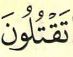 تَقۡتُلُونَ